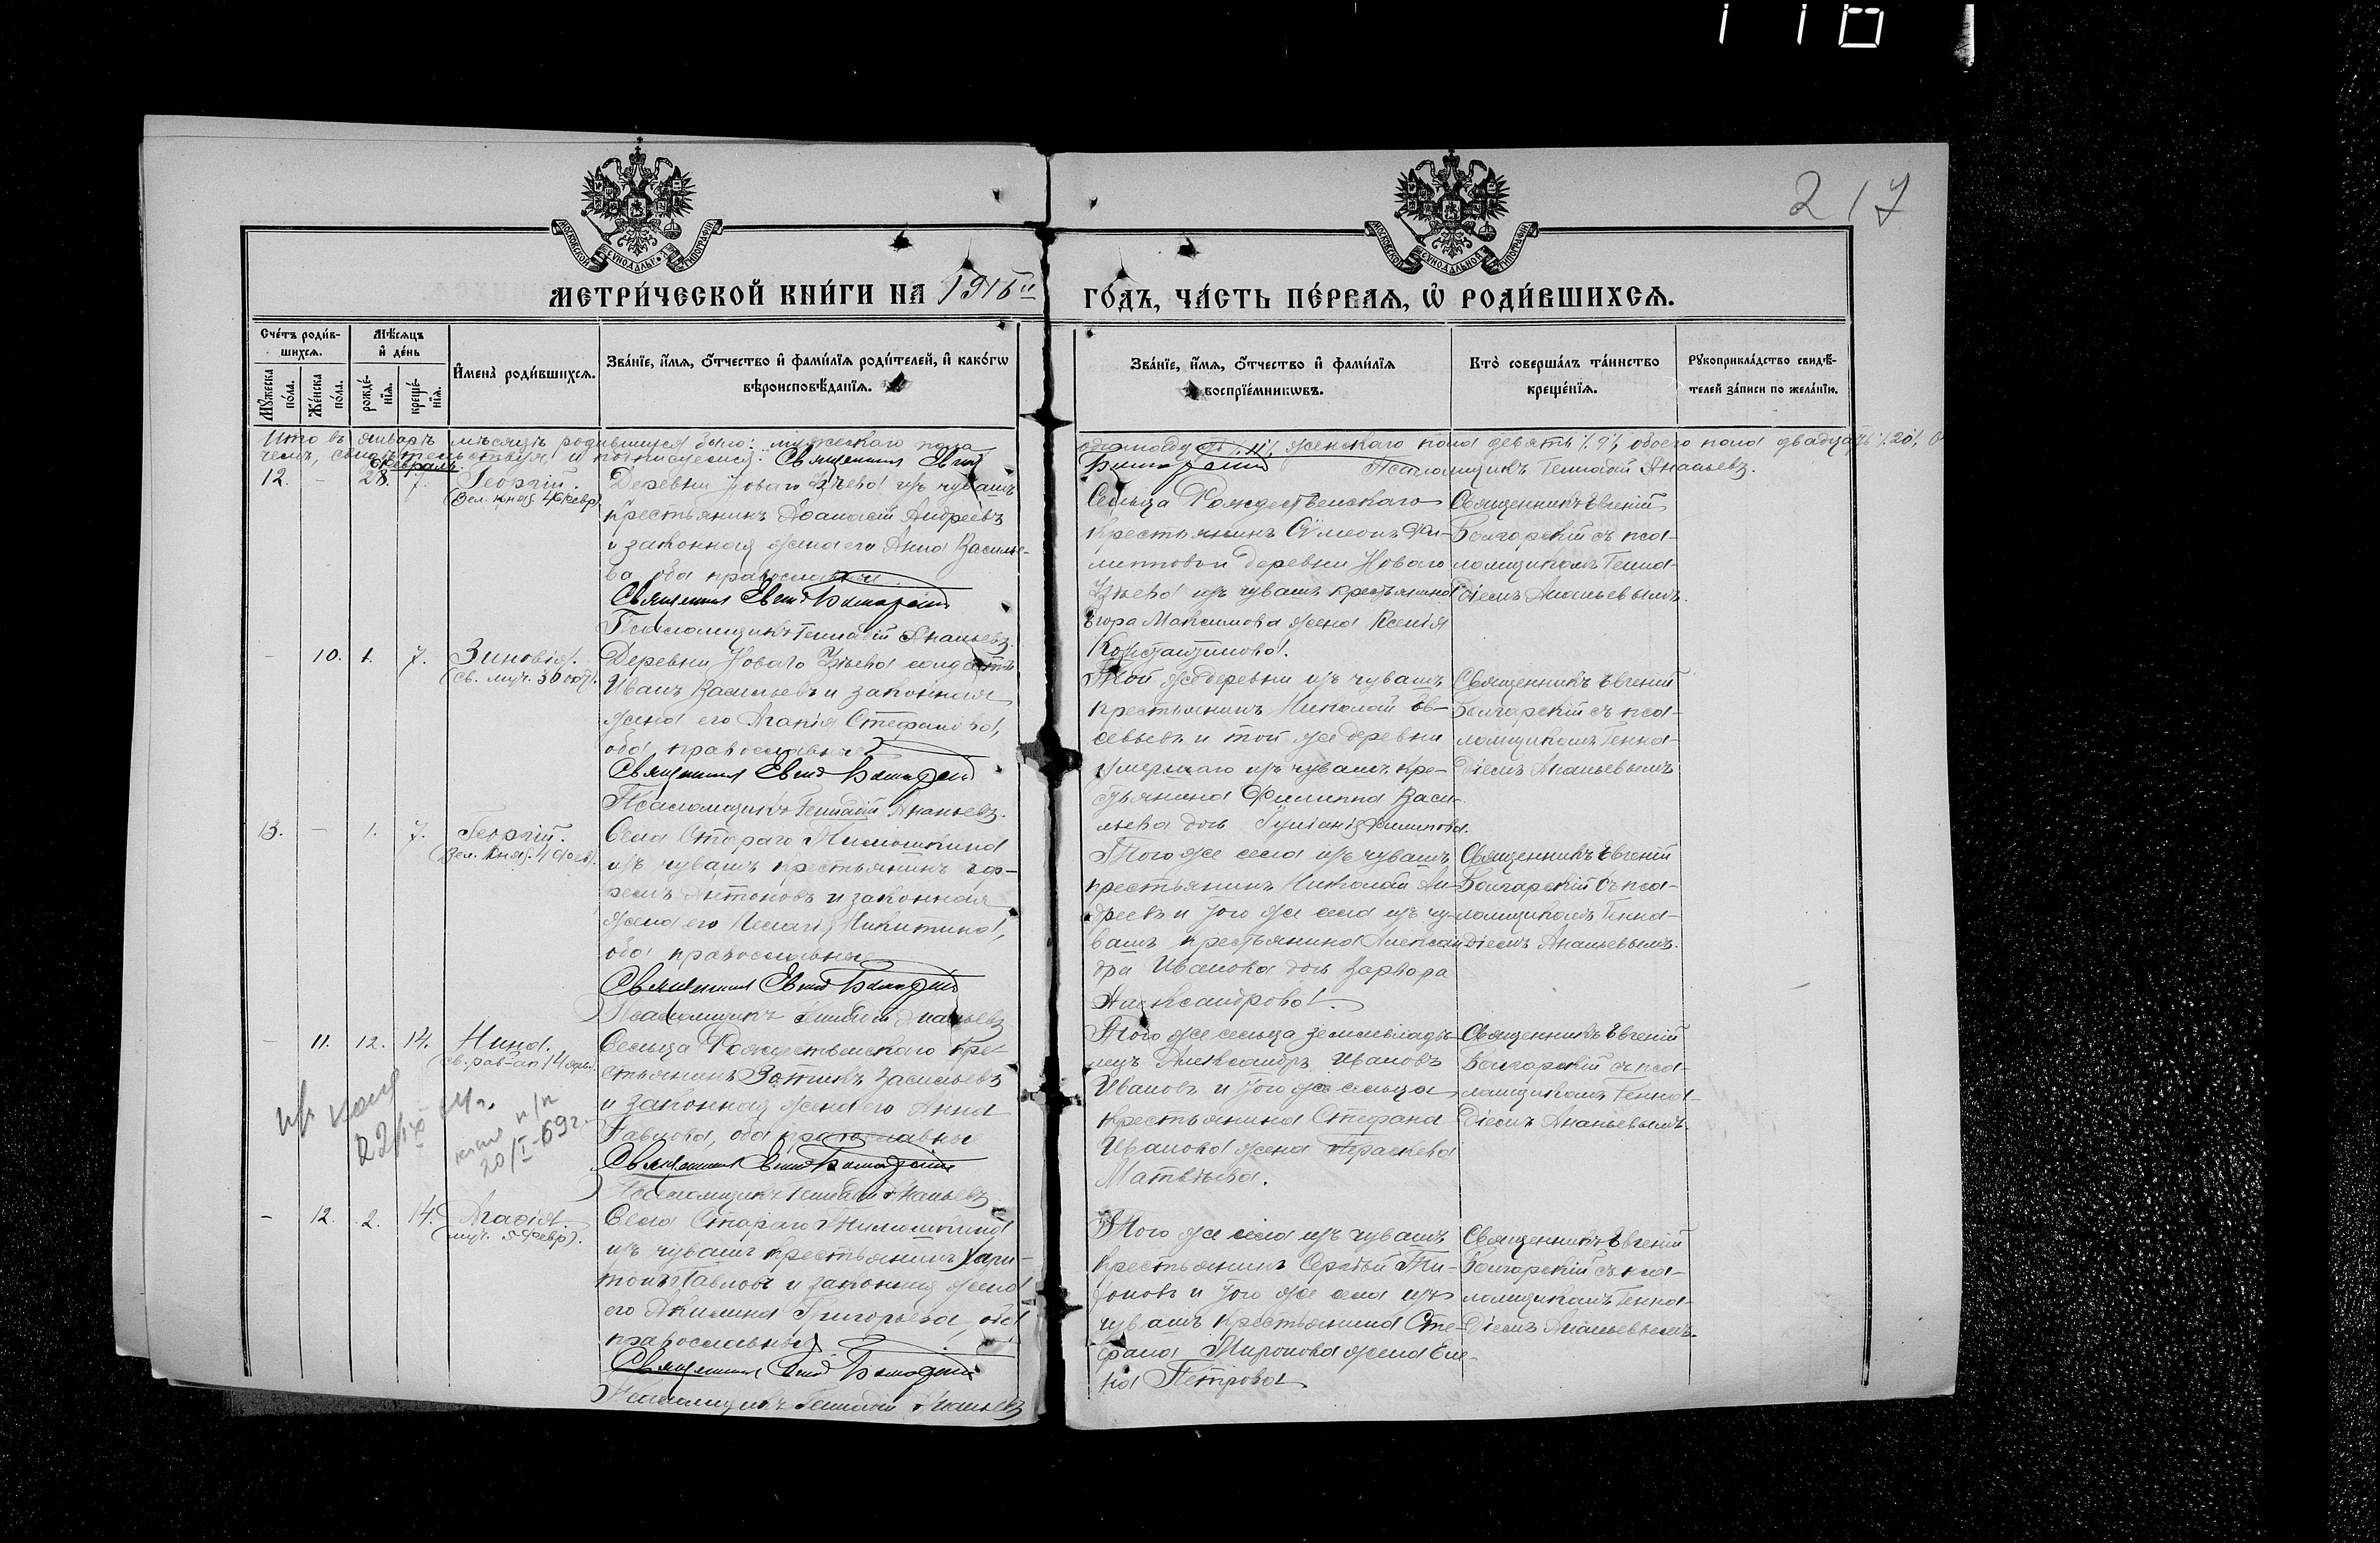 217
МОСКОВСКОЙ СѴНОДАЛЬНОЙ ТИПОГРАФІИ
МОСКОВСКОЙ СѴНОДАЛЬНОЙ ТИПОГРАФІИ
МЕТРИ́ЧЕСКОЙ КНИ́ГИ НА 1916й ГО́ДЪ, ЧА́СТЬ ПЕ́РВАѦ, Ѡ҆ РОДИ́ВШИХСѦ.
Сче́тъ роди́в-
шихсѧ.
Мѣ́сѧцъ
и҆ де́нь
Мꙋ́жеска по́ла.
Же́нска по́ла.
рожде́-
нїѧ.
креще́-
нїѧ.
И҆мена̀ роди́вшихсѧ.
Зва́нїе, и҆́мѧ, ѻ҆́тчество и҆ фами́лїѧ роди́телей, и҆ како́гѡ
вѣроисповѣ́данїѧ.
Зва́нїе, и҆́мѧ, ѻ҆́тчество и҆ фами́лїѧ
воспрїе́мникѡвъ.
Кто̀ соверша́лъ та́инство
креще́нїѧ.
Рꙋкоприкла́дство свидѣ́-
телей за́писи по жела́нїю.
Итого въ январѣ мѣсяцѣ родившихся было: мужескаго пола
женскаго пола девять /9/, обоего пола двадцать /20/, о
чемъ, свидѣтельствуя и подписуемся: Священникъ Евгеній
Болгарскій Псаломщикъ Геннадій Ананьевъ.
Февраль.
12. - 28. 7. Георгій.
(Вел. княз. 4 февр).
Деревни Новаго Узѣева изъ чувашъ
крестьянинъ Аѳанасій Андреевъ
и законная жена его Анна Василье-
ва, оба православные.
Священникъ Евгеній Болгарскій
Псаломщикъ Геннадій Ананьевъ.
Сельца Рождественскаго
крестьянинъ Сѵмеонъ Фи-
липповъ и деревни Новаго
Узѣева изъ чувашъ крестьянина
Егора Максимова жена Ксенія
Константинова.
Священникъ Евгеній
Болгарскій съ пса-
ломщикомъ Генна-
діемъ Ананьевымъ.
- 10. 1. 7. Зиновія.
(св. муч. 30 окт).
Деревни Новаго Узѣева солдатъ
Иванъ Васильевъ и законная
жена его Агапія Стефанова,
оба православные
Священникъ Евгеній Болгарскій
Псаломщикъ Геннадій Ананьевъ.
Той же деревни изъ чувашъ
крестьянинъ Николай Ев-
сеевъ и той же деревни
умершаго изъ чувашъ кре-
стьянина Филиппа Васи-
льева дочь Іуліанія Филиппова.
Священникъ Евгеній
Болгарскій съ пса-
ломщикомъ Генна-
діемъ Ананьевымъ
13. - 1. 7. Георгій.
(Вел. княз. 4 февр).
Села Стараго Тимошкина
изъ чувашъ крестьянинъ Еф-
ремъ Антоновъ и законная
жена его Пелагія Никитина,
оба православные
Священникъ Евгеній Болгарскій
Псаломщикъ Геннадій Ананьевъ
Того же села изъ чувашъ
крестьянинъ Николай Ан-
дреевъ и того же села изъ чу-
вашъ крестьянина Алексан
дра Иванова дочь Варвара
Александрова.
Священникъ Евгеній
Болгарскій съ пса-
ломщикомъ Генна-
діемъ Ананьевымъ.
- 11. 12. 14. Нина.
(св. рав-ап. 14 янв).
Сельца Рождественскаго кре-
стьянинъ Зотикъ Васильевъ
и законная жена его Анна
Павлова, оба православные
Священникъ Евгеній Болгарскій
Псаломщикъ Геннадій Ананьевъ
Того же сельца землевладѣ-
лецъ Александръ Ивановъ
Ивановъ и того же сельца
крестьянина Стефана
Иванова жена Параскева
Матвѣева.
Священникъ Евгеній
Болгарскій съ пса-
ломщикомъ Генна-
діемъ Ананьевымъ.
22/IX 64г.
20/I-69г.
- 12. 2. 14. Агаѳія.
(муч. 5 февр).
Села Стараго Тимошкина
изъ чувашъ крестьянинъ Хари-
тонъ Павловъ и законная жена
его Акилина Григорьева, оба
православные
Священникъ Евгеній Болгарскій
Псаломщикъ Геннадій Ананьевъ
Того же села изъ чувашъ
крестьянинъ Сергѣй Ти-
хоновъ и того же села изъ
чувашъ крестьянина Сте-
фана Миронова жена Еле-
на Петрова
Священникъ Евгеній
Болгарскій съ пса-
ломщикомъ Генна-
діемъ Ананьевымъ.